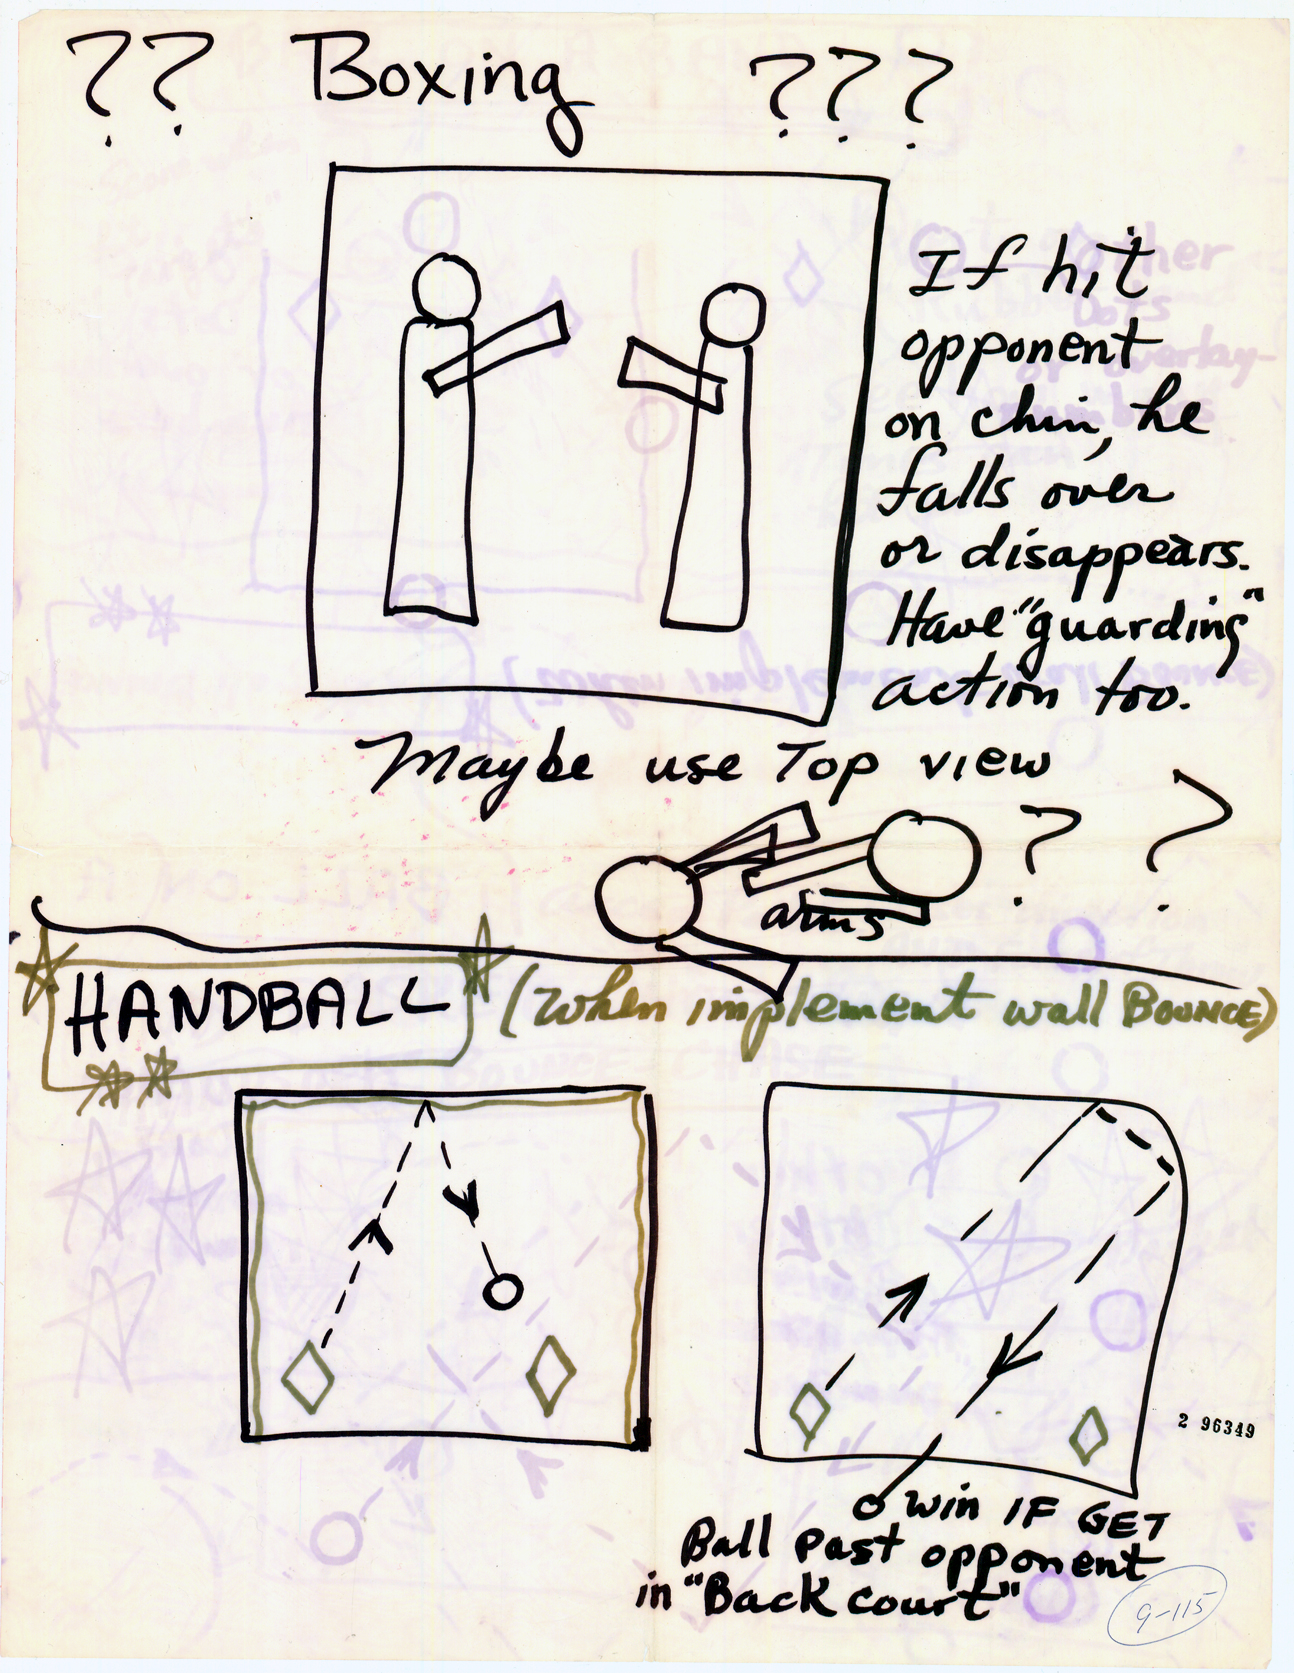 ?? Boxing ???
If hit
opponent
on chin, he
falls over
or disappears.
Have "guarding"
action too.
Maybe use Top view
? ?
arms
HANDBALL (When implement wall BOUNCE)
2 96349
win IF GET
Ball past opponent
in "Back court"
9-115